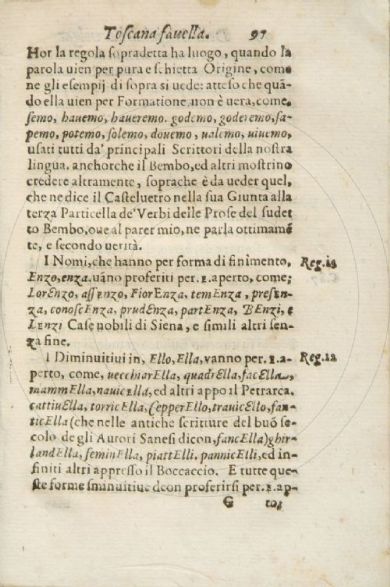 Toscana fauella. 97
Hor la regola sopradetta ha luogo, quando la
parola uien per pura e schietta Origine, come
ne gli esempij di sopra si uede: atteso che quã-
do ella uien per Formatione, non è uera, come,
semo, hauemo, haueremo. godemo, goderemo, sa-
pemo, potemo, solemo, douemo, ualemo, uiuemo,
usati tutti da' principali Scrittori della nostra
lingua. anchorche il Bembo, ed altri mostrino
credere altramente, soprache è da ueder quel,
che ne dice il Casteluetro nella sua Giunta alla
terza Particella de' Verbi delle Prose del sudet
to Bembo, oue al parer mio, ne parla ottimamẽ
te, e secondo uerità.
I Nomi, che hanno per forma di finimento, Reg.11
Enzo, enza. uãno proferiti per. ε. aperto, come;
Lorεnzo, assεnzo, Fiorεnza, temεnza, presεn-
za, conoscεnza, prudεnza, partεnza, Bεnzi, e
Lεnzi Case nobili di Siena, e simili altri sen-
za fine.
I Diminutiui in, Ello, Ella, vanno per. ε. a- Reg.12
perto, come, uecchiarεlla, quadrεlla, facεlla,
mammεlla, nauicεlla, ed altri appo il Petrarca.
cattiuεlla, torricεlla, Cεpperεllo, trauicεllo, fan-
ticεlla (che nelle antiche scritture del buõ se-
colo de gli Autori Sanesi dicon, fancεlla) ghir-
landεlla, seminεlla, piattεlli. pannicεlli, ed in-
finiti altri appresso il Boccaccio. E tutte que-
ste forme sminuitiue deon proferirsi per. ε. ap-
G to,